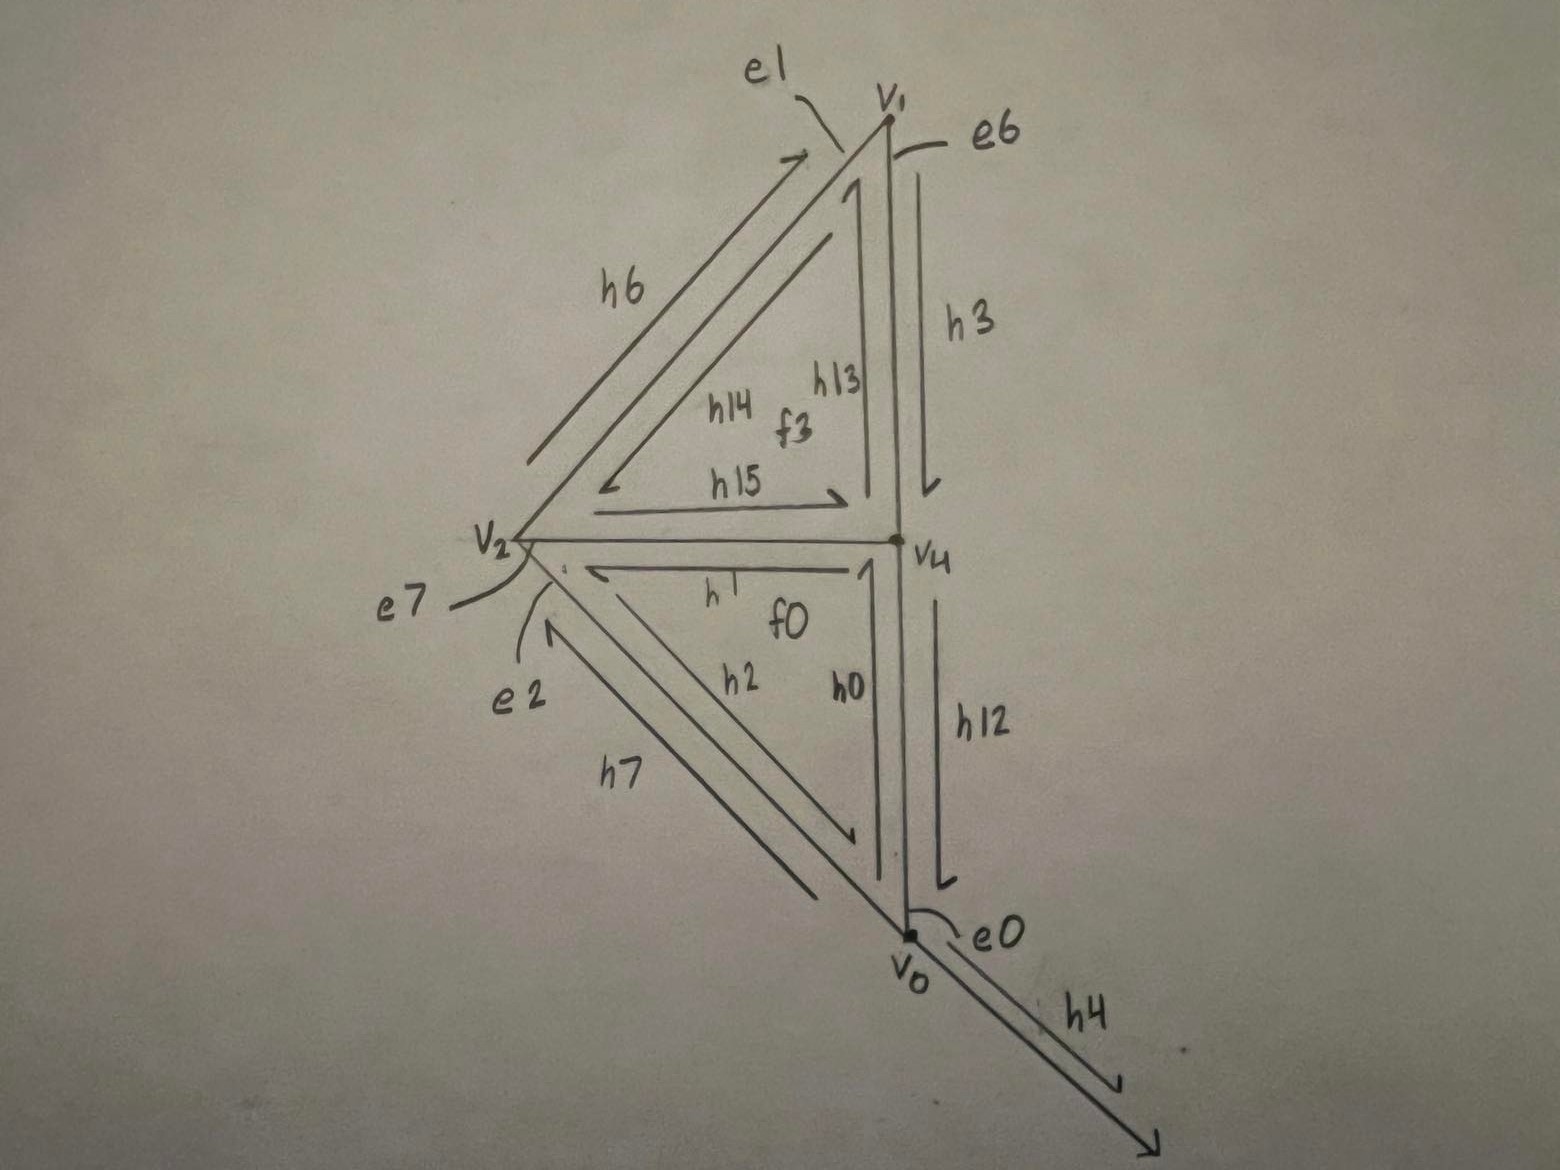 e1
V1
e6
h6
h3
h13
h14
f3
h15
V2
V4
e7
h1
f0
e2
h2
h0
h12
h7
e0
V0
h4